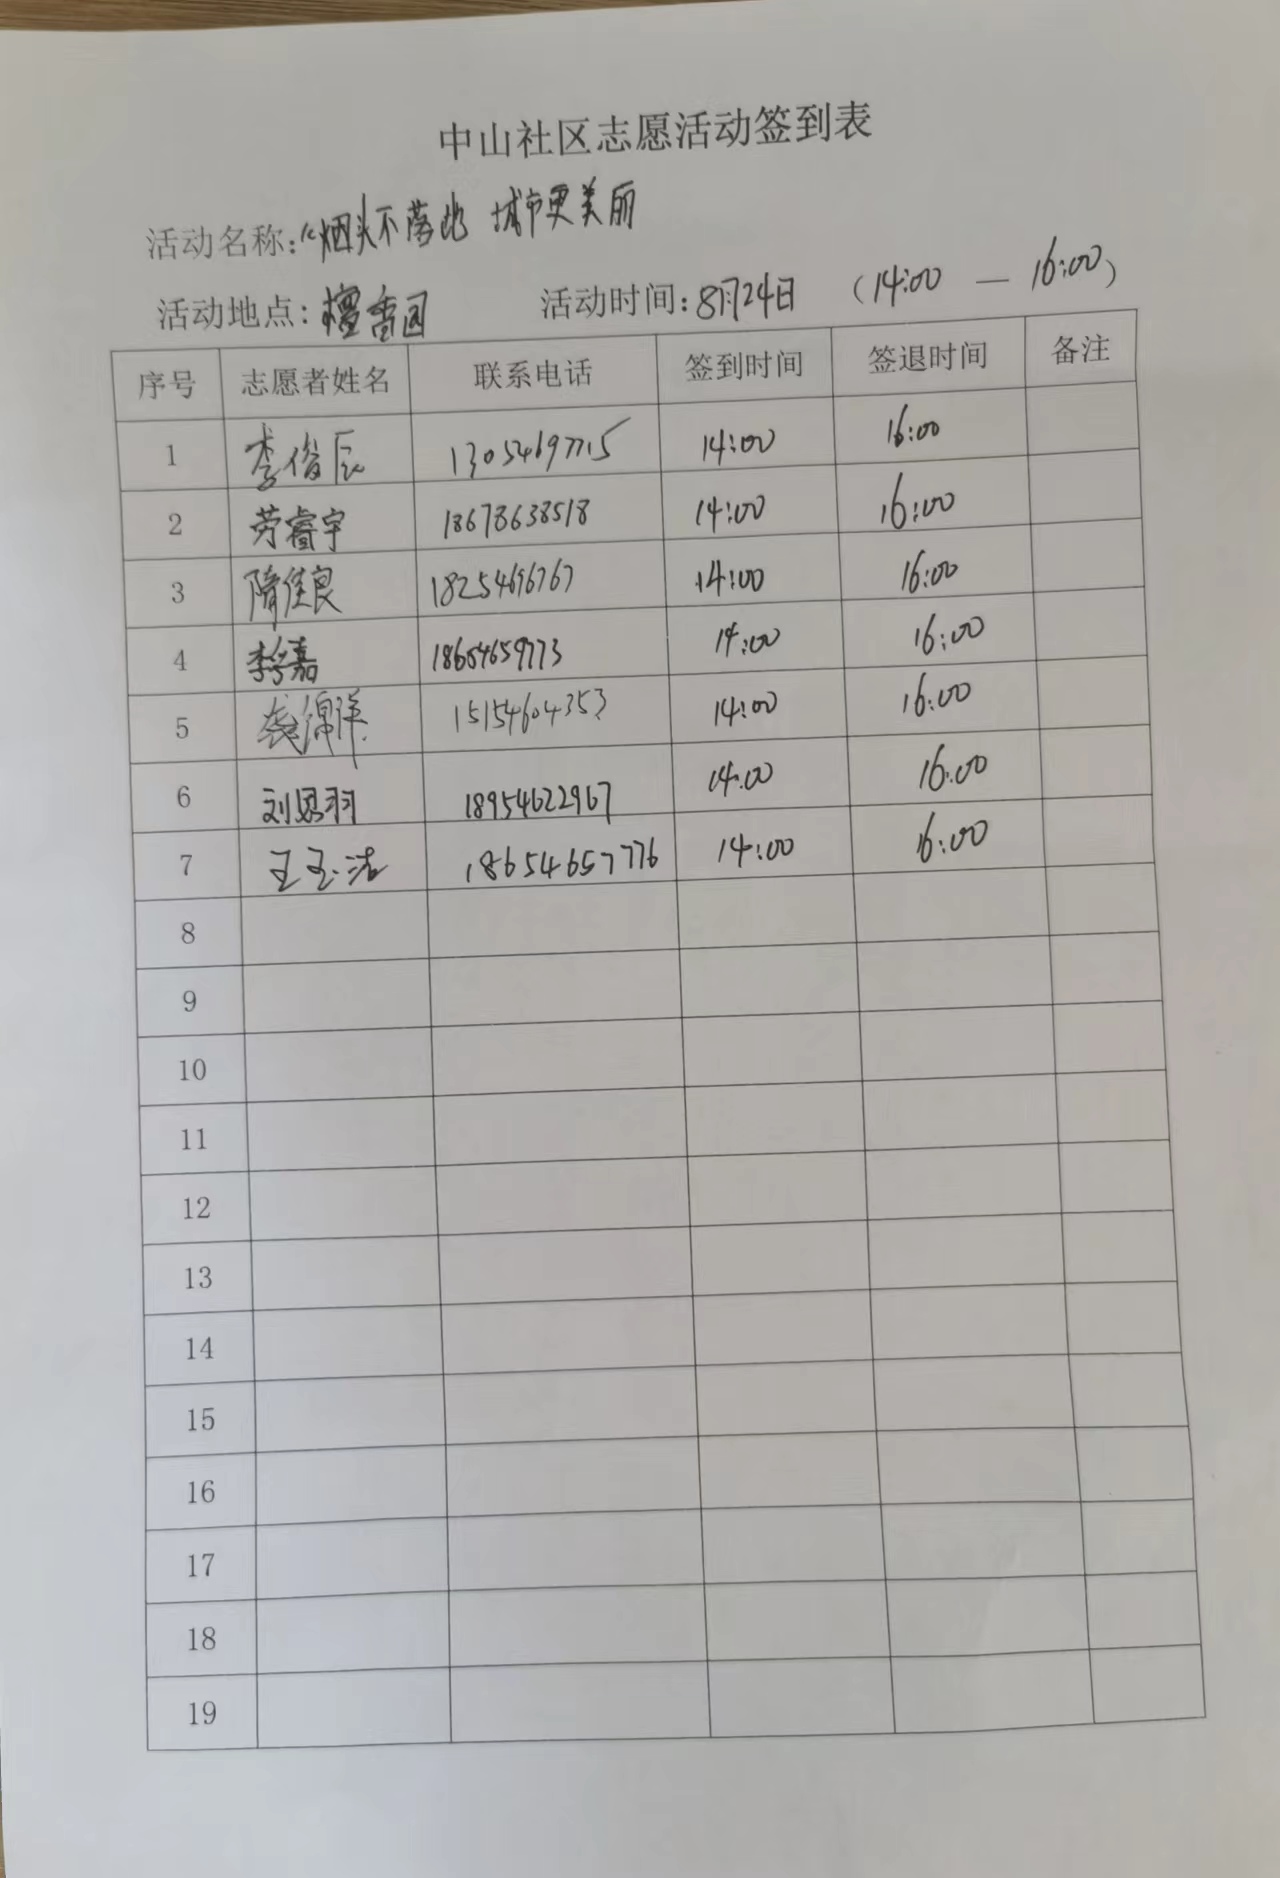 中山社区志愿活动签到表
活动名称:“烟头不落地 城市更美丽
活动地点:檀香园 活动时间:8月24日 (14:00 — 16:00)
序号 志愿者姓名 联系电话 签到时间 签退时间 备注
1 李俊辰 13054697715 14:00 16:00
2 劳睿宇 18678638518 14:00 16:00
3 隋佳良 18254696767 14:00 16:00
4 李嘉 18654659773 14:00 16:00
5 15154604353 14:00 16:00
6 刘思羽 18954622967 14:00 16:00
7 王玉洁 18654657776 14:00 16:00
8
9
10
11
12
13
14
15
16
17
18
19